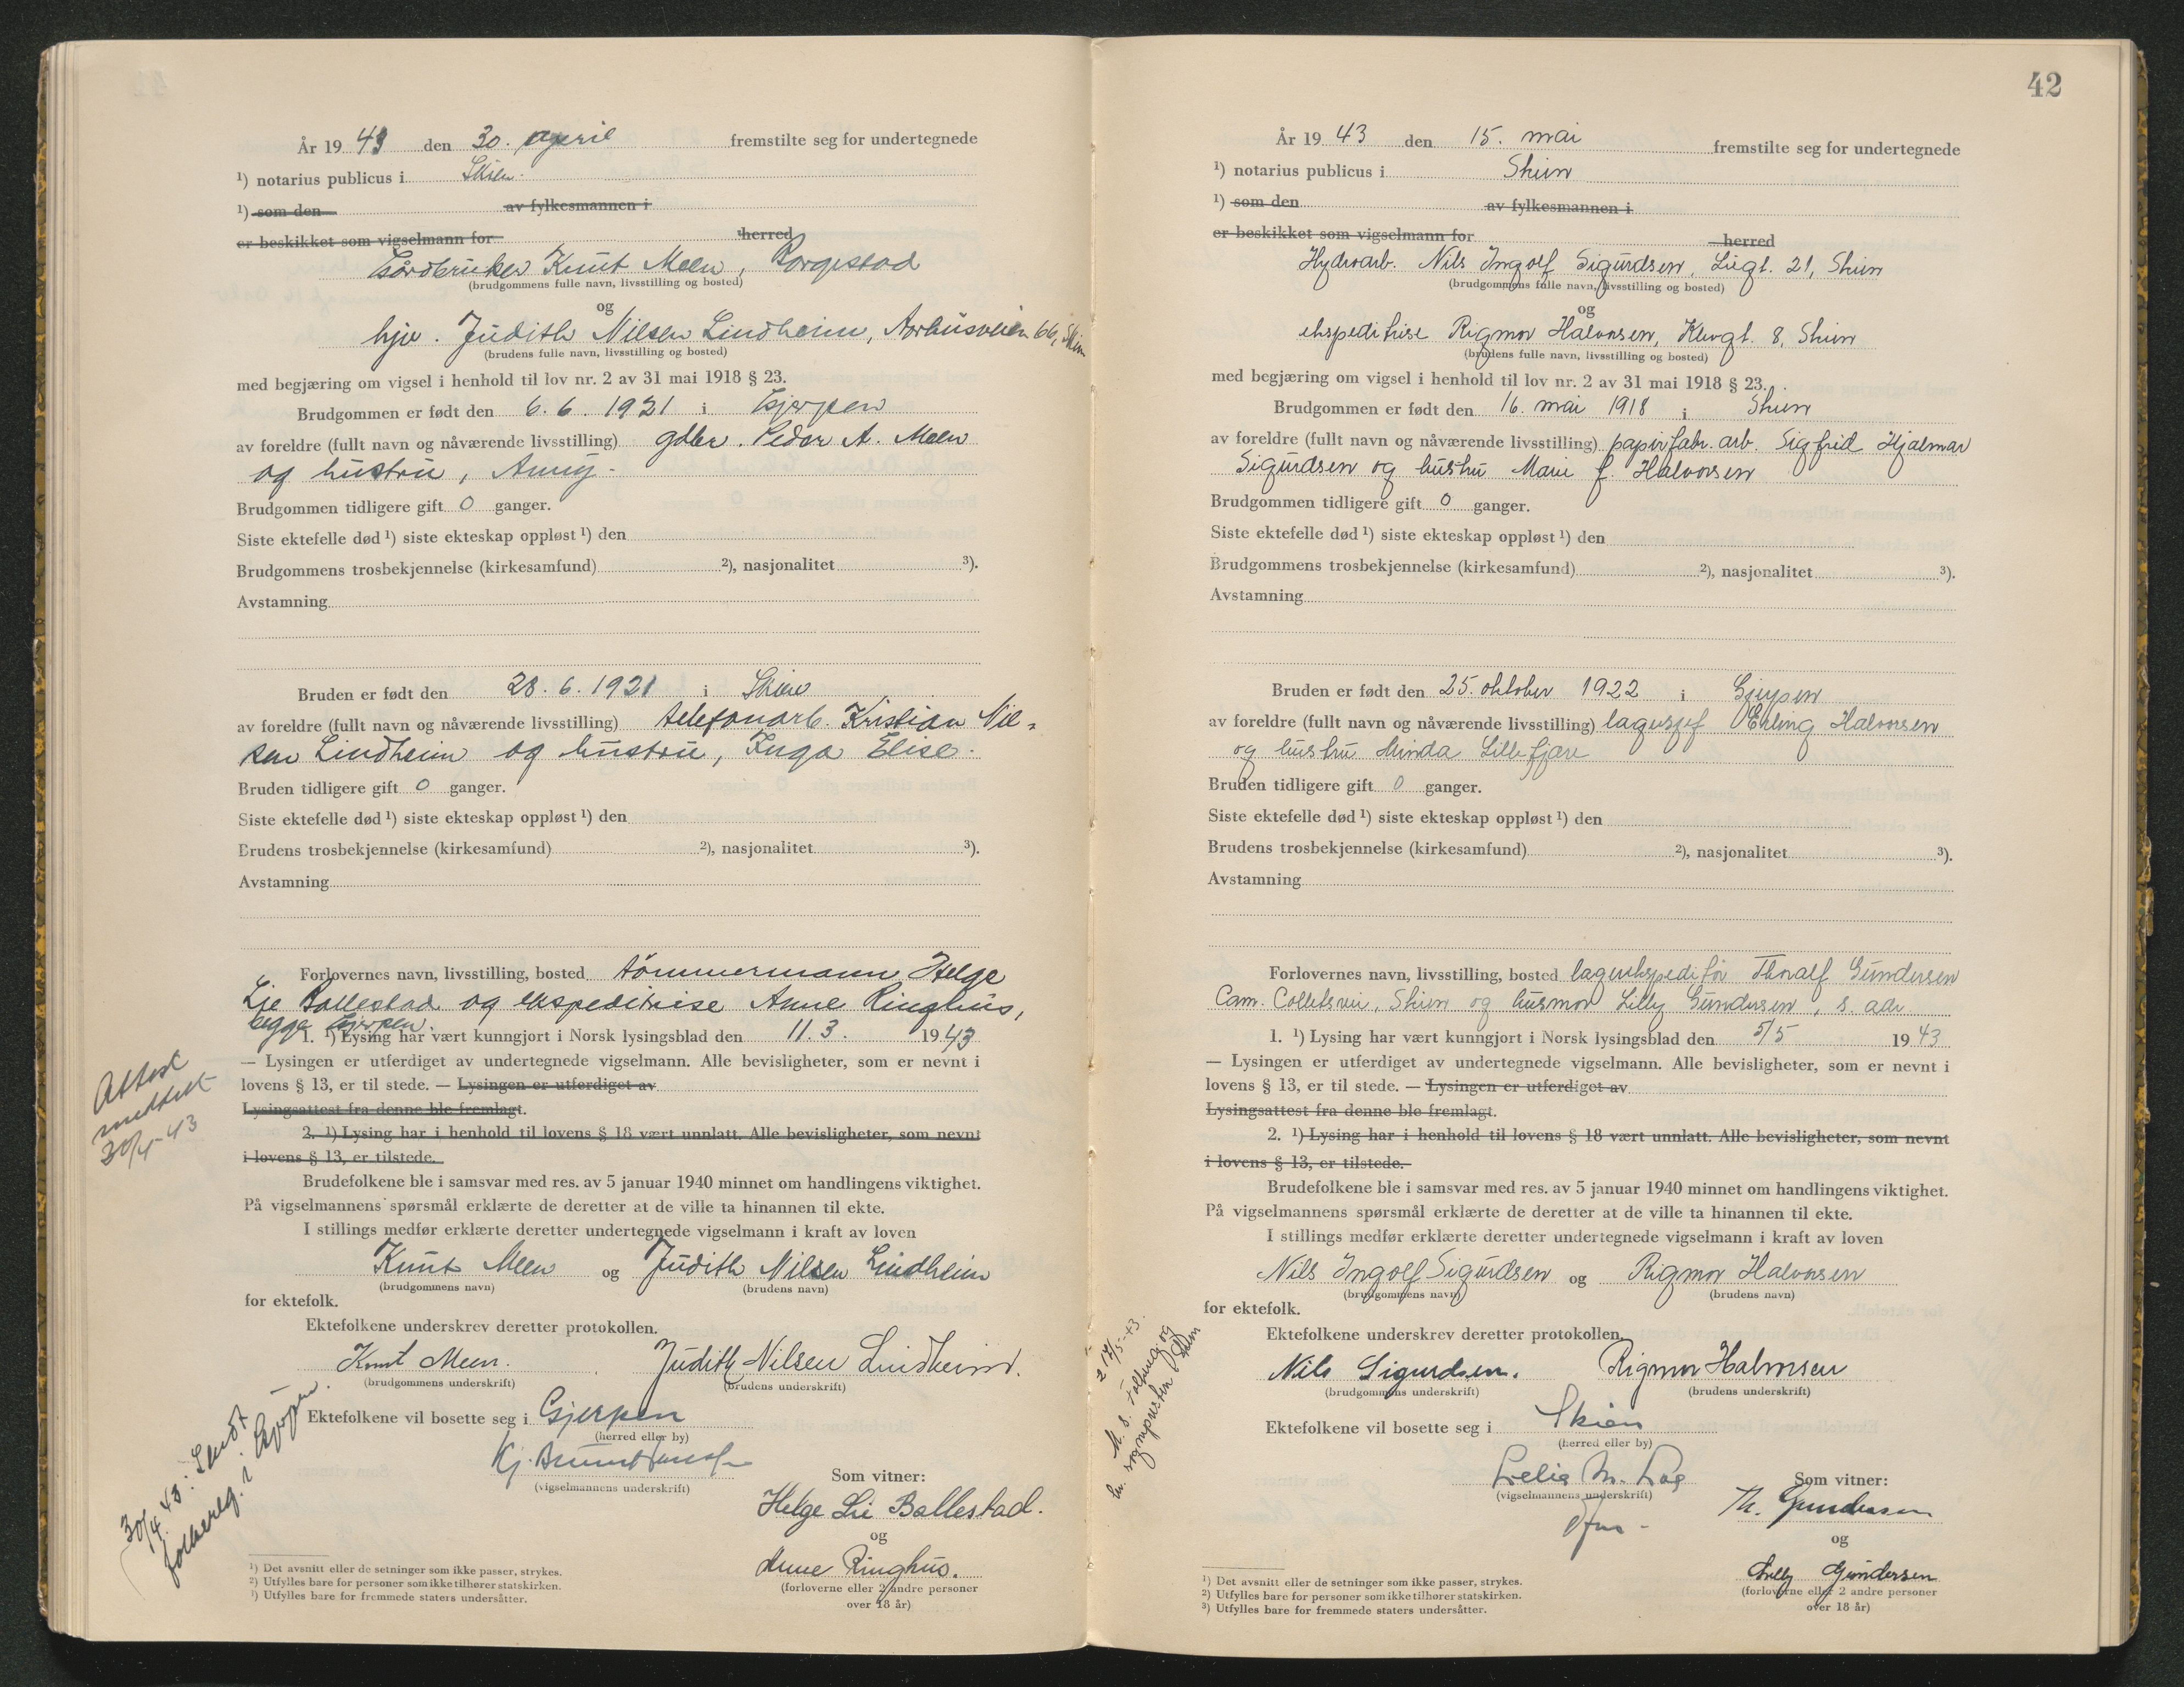 År 1943 den 30. april fremstilte seg for undertegnede
¹) notarius publicus i Skien.
¹) som den av fylkesmannen i
er beskikket som vigselmann for herred
Gårdbruker Knut Meen, Borgestad
(brudgommens fulle navn, livsstilling og bosted)
og
hjv. Judith Nilsen Lindheim, Aarhusveien 66, Skien
(brudens fulle navn, livsstilling og bosted)
med begjæring om vigsel i henhold til lov nr. 2 av 31 mai 1918 § 23.
Brudgommen er født den 6. 6. 1921 i Gjerpen
av foreldre (fullt navn og nåværende livsstilling) gdbr. Peder A. Meen
og hustru, Anny.
Brudgommen tidligere gift 0 ganger.
Siste ektefelle død ¹) siste ekteskap oppløst ¹) den
Brudgommens trosbekjennelse (kirkesamfund) ²), nasjonalitet ³).
Avstamning
Bruden er født den 28. 6. 1921 i Skien
av foreldre (fullt navn og nåværende livsstilling) telefonarb. Kristian Nil-
sen Lindheim og hustru, Inga Elise.
Bruden tidligere gift 0 ganger.
Siste ektefelle død ¹) siste ekteskap oppløst ¹) den
Brudens trosbekjennelse (kirkesamfund) ²), nasjonalitet ³).
Avstamning
Forlovernes navn, livsstilling, bosted tömmermann Helge
Lie Ballestad og ekspeditrise Anne Ringhus,
begge Gjerpen.
1. ¹) Lysing har vært kunngjort i Norsk lysingsblad den 11. 3. 1943
— Lysingen er utferdiget av undertegnede vigselmann. Alle bevisligheter, som er nevnt i
lovens § 13, er til stede. — Lysingen er utferdiget av
Lysingsattest fra denne ble fremlagt.
2. ¹) Lysing har i henhold til lovens § 18 vært unnlatt. Alle bevisligheter, som nevnt
i lovens § 13, er tilstede.
Attest
meddelt
30/4-43
Brudefolkene ble i samsvar med res. av 5 januar 1940 minnet om handlingens viktighet.
På vigselmannens spørsmål erklærte de deretter at de ville ta hinannen til ekte.
I stillings medfør erklærte deretter undertegnede vigselmann i kraft av loven
Knut Meen og Judith Nilsen Lindheim
(brudgommens navn) (brudens navn)
for ektefolk.
Ektefolkene underskrev deretter protokollen.
Knut Meen. Judith Nilsen Lindheim.
(brudgommens underskrift) (brudens underskrift)
Ektefolkene vil bosette seg i Gjerpen
(herred eller by)
(vigselmannens underskrift)
30/4. 43: Sendt
folkereg. i Gjerpen.
Som vitner:
Helge Lie Ballestad.
og
Anne Ringhus.
(forloverne eller 2 andre personer
over 18 år)
¹) Det avsnitt eller de setninger som ikke passer, strykes.
²) Utfylles bare for personer som ikke tilhører statskirken.
³) Utfylles bare for fremmede staters undersåtter.
42
År 1943 den 15. mai fremstilte seg for undertegnede
¹) notarius publicus i Skien
¹) som den av fylkesmannen i
er beskikket som vigselmann for herred
Hydroarb. Nils Ingolf Sigurdsen, Liegt. 21, Skien
(brudgommens fulle navn, livsstilling og bosted)
og
ekspeditrise Rigmor Halvorsen, Klevgt. 8, Skien
(brudens fulle navn, livsstilling og bosted)
med begjæring om vigsel i henhold til lov nr. 2 av 31 mai 1918 § 23.
Brudgommen er født den 16. mai 1918 i Skien
av foreldre (fullt navn og nåværende livsstilling) papirfabr. arb. Sigfrid Hjalmar
Sigurdsen og hustru Marie f. Halvorsen
Brudgommen tidligere gift 0 ganger.
Siste ektefelle død ¹) siste ekteskap oppløst ¹) den
Brudgommens trosbekjennelse (kirkesamfund) ²), nasjonalitet ³).
Avstamning
Bruden er født den 25. oktober 1922 i Gjerpen
av foreldre (fullt navn og nåværende livsstilling) lagersjef Erling Halvorsen
og hustru Minda Lillefjære
Bruden tidligere gift 0 ganger.
Siste ektefelle død ¹) siste ekteskap oppløst ¹) den
Brudens trosbekjennelse (kirkesamfund) ²), nasjonalitet ³).
Avstamning
Forlovernes navn, livsstilling, bosted lagerekspeditör Thoralf Gundersen
Cam. Colletsvei, Skien og husmor Lilly Gundersen, s. adr.
1. ¹) Lysing har vært kunngjort i Norsk lysingsblad den 5/5 1943
— Lysingen er utferdiget av undertegnede vigselmann. Alle bevisligheter, som er nevnt i
lovens § 13, er til stede. — Lysingen er utferdiget av
Lysingsattest fra denne ble fremlagt.
2. ¹) Lysing har i henhold til lovens § 18 vært unnlatt. Alle bevisligheter, som nevnt
i lovens § 13, er tilstede.
Brudefolkene ble i samsvar med res. av 5 januar 1940 minnet om handlingens viktighet.
På vigselmannens spørsmål erklærte de deretter at de ville ta hinannen til ekte.
I stillings medfør erklærte deretter undertegnede vigselmann i kraft av loven
Nils Ingolf Sigurdsen og Rigmor Halvorsen
(brudgommens navn) (brudens navn)
for ektefolk.
Ektefolkene underskrev deretter protokollen.
Nils Sigurdsen. Rigmor Halvorsen
(brudgommens underskrift) (brudens underskrift)
Ektefolkene vil bosette seg i Skien
(herred eller by)
(vigselmannens underskrift)
Som vitner:
Th. Gundersen
og
Lilly Gundersen
(forloverne eller 2 andre personer
over 18 år)
¹) Det avsnitt eller de setninger som ikke passer, strykes.
²) Utfylles bare for personer som ikke tilhører statskirken.
³) Utfylles bare for fremmede staters undersåtter.